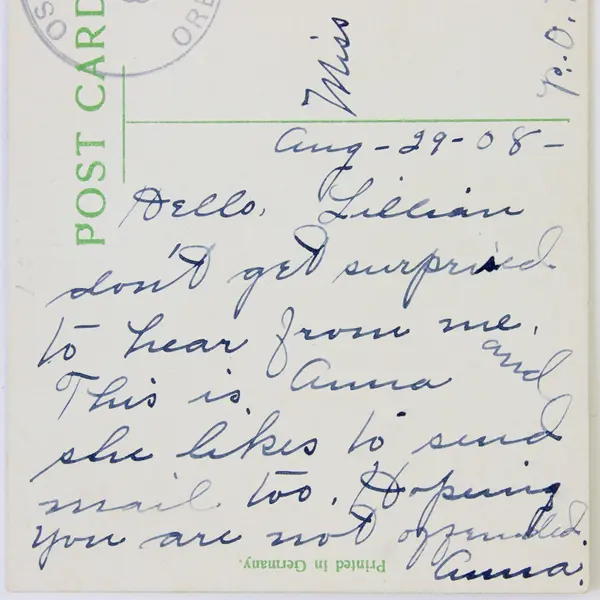 POST CARD
ORE
Miss
P.O.
Aug-29-08-
Hello. Lillian
don't get surprised
to hear from me.
This is Anna and
she likes to send
mail too. Hoping
you are not offended.
Anna.
Printed in Germany.